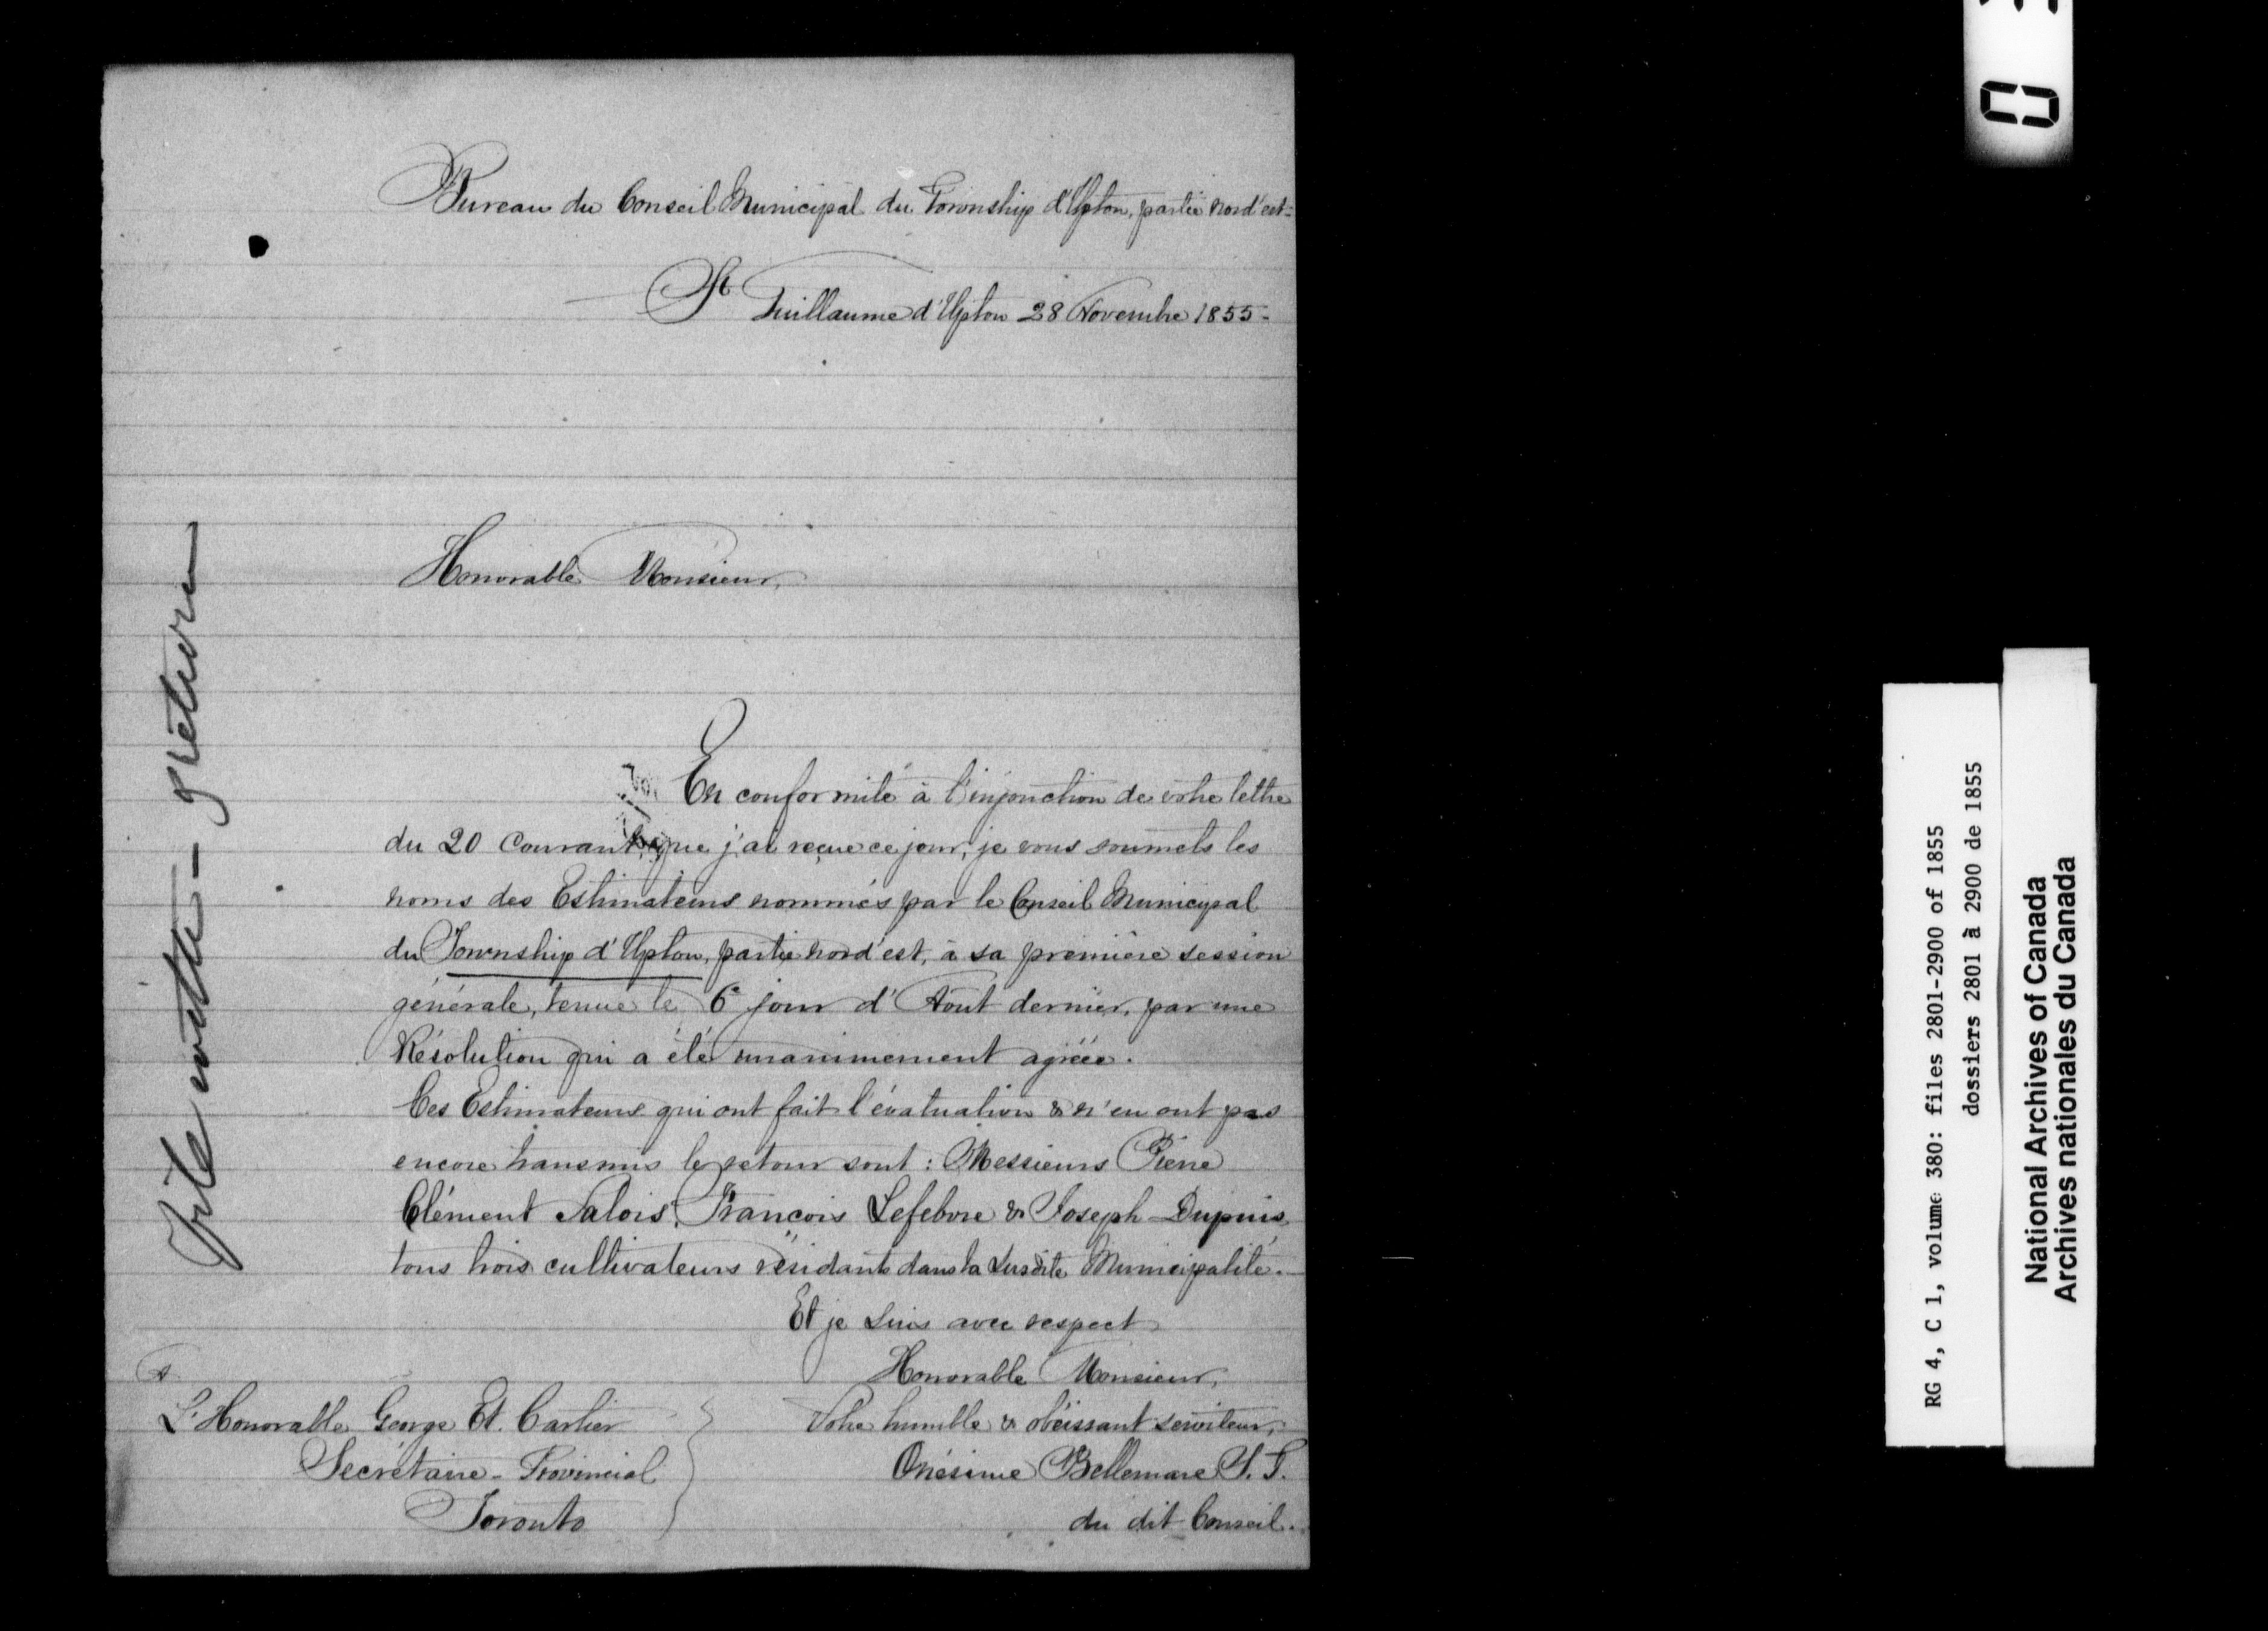 Bureau du Conseil Municipal du Township d'Upton, partie nord'est-
St Guillaume d'Upton 28 Novembre 1855-
Honorable Monsieur,
En conformité à l'injonction de votre lettre
du 20 Courant, que j'ai reçue ce jour, je vous soumets les
noms des Estimateurs nommés par le Conseil Municipal
du Township d'Upton, partie nord'est, à sa première session
générale, tenue le 6e jour d'Aout dernier, par une
Résolution qui a été unanimement agréée.
Ces Estimateurs qui ont fait l'évaluation & n'en ont pas
encore transmis le retour sont : Messieurs Pierre
Clément Salois, François Lefebvre & Joseph Dupuis,
tous trois cultivateurs résidants dans la susdite Municipalité.
Et je suis avec respect
Honorable Monsieur,
Votre humble & obéissant serviteur,
Onésime Bellemare S. T.
du dit Conseil.
A
L'Honorable George Et. Cartier
Secrétaire-Provincial
Toronto
File with
RG 4, C 1, volume 380: files 2801-2900 of 1855
dossiers 2801 à 2900 de 1855
National Archives of Canada
Archives nationales du Canada